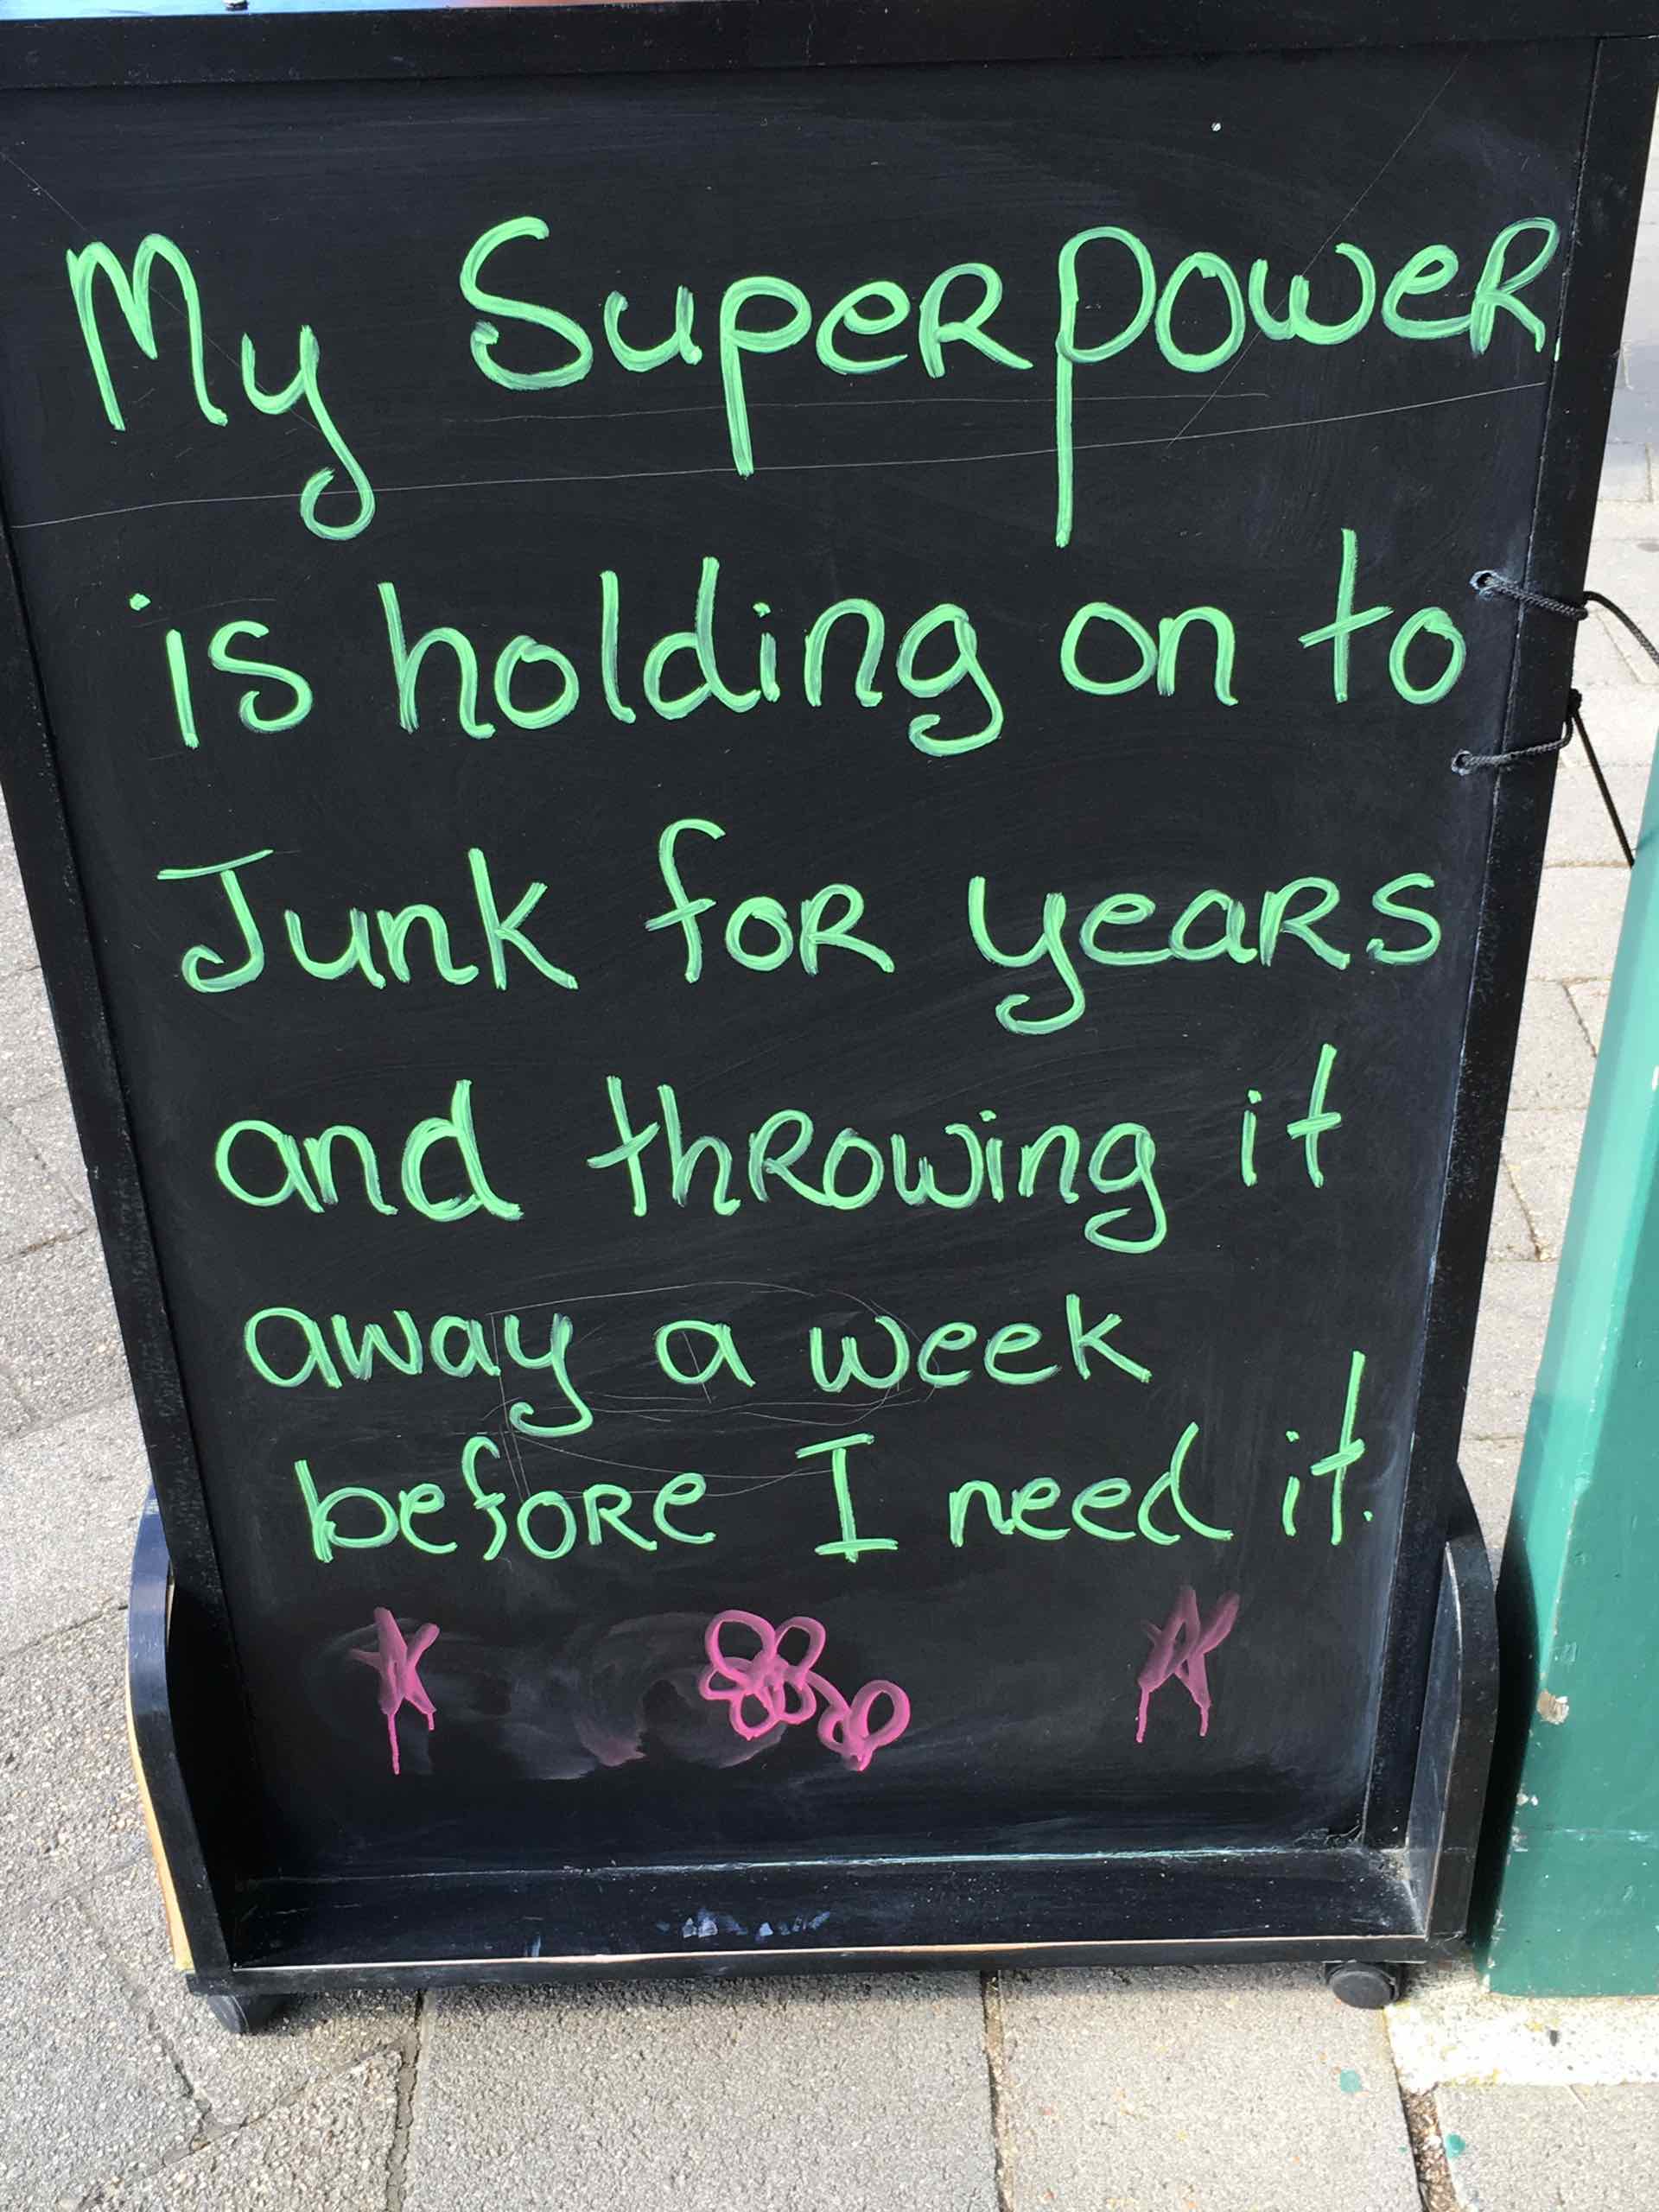 My Superpower
is holding on to
Junk for years
and throwing it
away a week
before I need it.